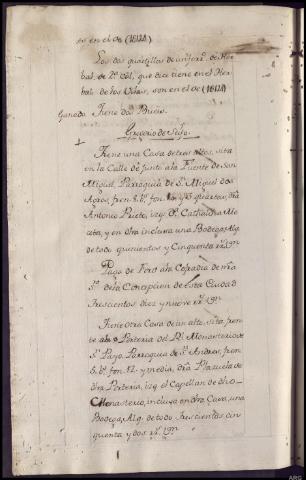 es en el de (1814)
Los dos quartillos de
bal. de 2ª cal., que dice tiene en el Her
bal de los Vilas, son en el de (1814)
Ganado Tiene dos Bueis.
Gregorio de Seijo.
Tiene una Casa de tres altos, sita
en la Calle de junto ala Fuente de San
Miguel, Parroquia de Sn. Miguel dos
Agros, fren. 8. bs. fon. quartas, dra
Antonio Prieto, izq. Dª Cathalina
y en dha inclusa una Bodega, Alq.
de todo quinientos y Cinquenta rs. vn.
Pago de Foro ala Cofradia de nra
Sra. de la Concepcion de esta Ciudad
Trescientos diez y nueve rs. vn.
Tiene otra Casa de un alto, sita, fren
te ala Porteria del Rl. Monasterio de
Sn. Payo, Parroquia de Sn. Andres, fren.
5. bs. fon. 12. y media, dra Plazuela de
dha Porteria, izq. el Capellan de dho
Monasterio, inclusa en dha Casa, una
Bodega, Alq. de todo Trescientos cin
quenta y dos rs. vn.